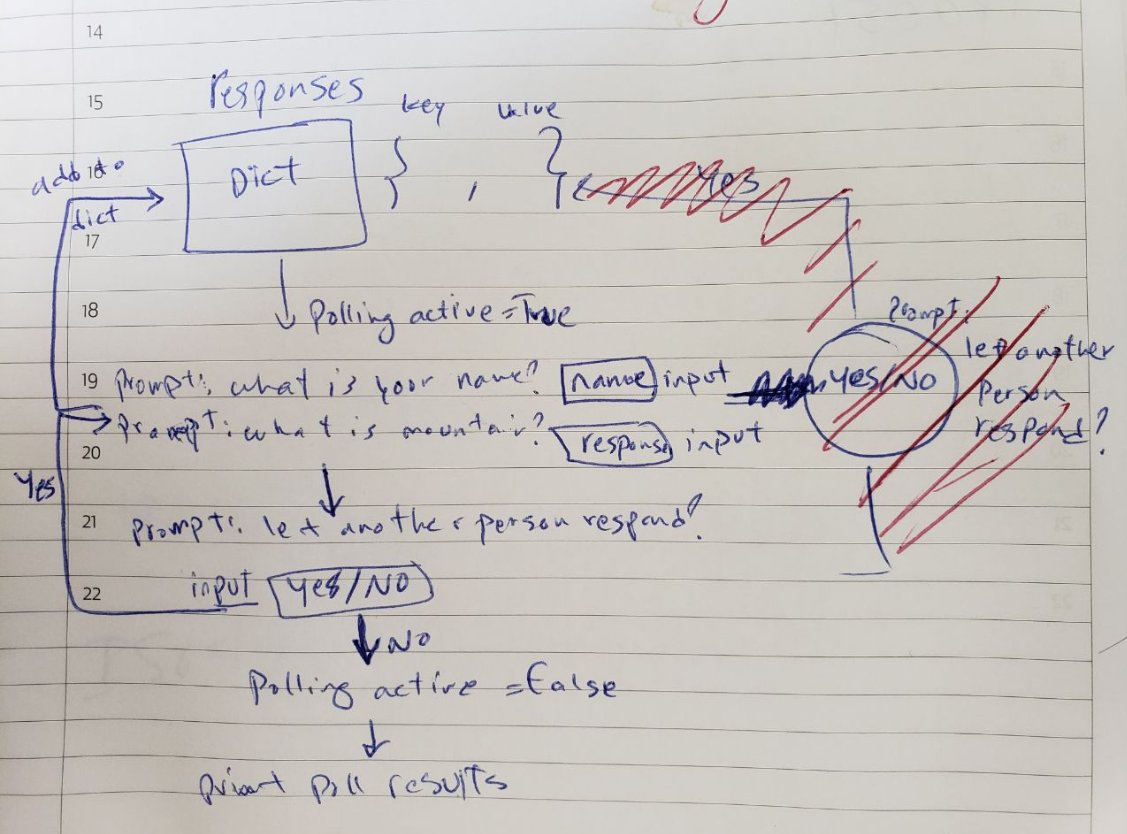 14
15
responses
key value
16
add to
Dict
{ , }
Yes
dict
17
18
Polling active = True
Prompt:
let another
person
respond?
Yes/NO
19
prompt: what is your name? name input
prompt: what is mountain? response input
20
Yes
21
prompt: let another person respond?
22
input Yes/NO
NO
Polling active = false
print poll results